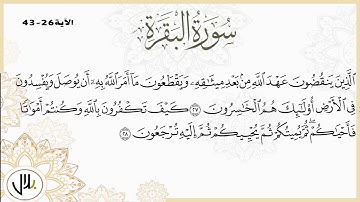 الآية 26-43
سُورَةُ البَقَرَةِ
الَّذِينَ يَنقُضُونَ عَهْدَ اللَّهِ مِنۢ بَعْدِ مِيثَٰقِهِۦ وَيَقْطَعُونَ مَآ أَمَرَ اللَّهُ بِهِۦٓ أَن يُوصَلَ وَيُفْسِدُونَ
فِي الْأَرْضِ أُوْلَٰٓئِكَ هُمُ الْخَٰسِرُونَ ٢٧ كَيْفَ تَكْفُرُونَ بِاللَّهِ وَكُنتُمْ أَمْوَٰتًا
فَأَحْيَٰكُمْ ثُمَّ يُمِيتُكُمْ ثُمَّ يُحْيِيكُمْ ثُمَّ إِلَيْهِ تُرْجَعُونَ ٢٨